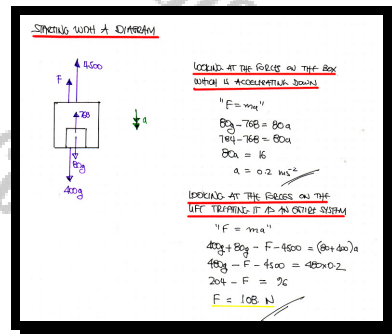 STARTING WITH A DIAGRAM
4500
F
768
a
80g
400g
LOOKING AT THE FORCES ON THE BOX
WHICH IS ACCELERATING DOWN
"F = ma"
80g - 768 = 80a
784 - 768 = 80a
80a = 16
a = 0.2 ms⁻²
LOOKING AT THE FORCES ON THE
LIFT TREATING IT AS AN ENTIRE SYSTEM
"F = ma"
400g + 80g - F - 4500 = (80+400)a
480g - F - 4500 = 480×0.2
204 - F = 96
F = 108 N